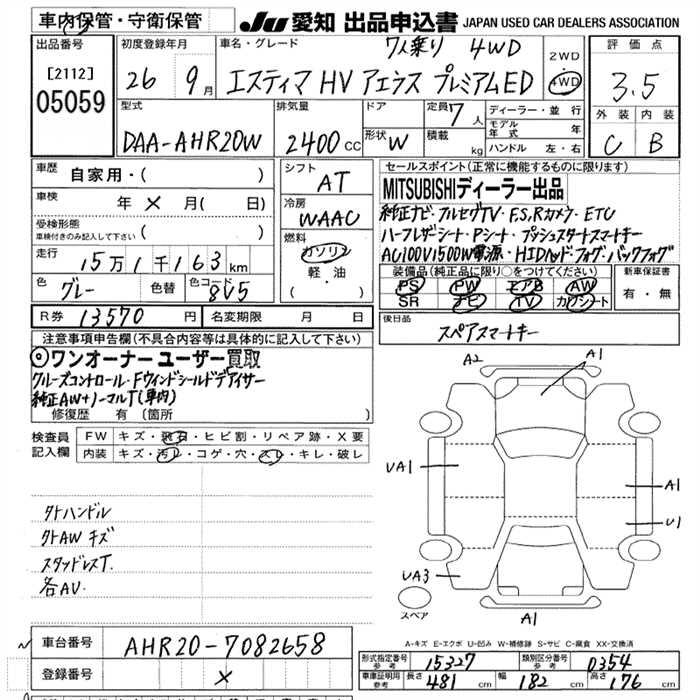 車内保管・守衛保管
JU 愛知 出品申込書 JAPAN USED CAR DEALERS ASSOCIATION
出品番号 初度登録年月 車名・グレード 7人乗り 4WD 2WD 評価点
[2112] 26 9月 エスティマ HV アエラス プレミアムED 4WD 3.5
05059 外装 内装
型式 排気量 ドア 定員 7人 ディーラー・並行 C B
DAA-AHR20W 2400cc 形状 W 積載 kg モデル年式 年
ハンドル 左・右
車歴 自家用・( ) シフト AT セールスポイント(正常に機能するものに限ります)
車検 年 × 月( 日) 冷房 WAAC MITSUBISHIディーラー出品
受検形態 純正ナビ・フルセグTV・F,S,Rカメラ・ETC
車検付きのみ記入して下さい( ) 燃料 ガソリン ハーフレザーシート・Pシート・プッシュスタートスマートキー
走行 15万1千163km 軽・油 AC100V1500W電源・HIDヘッド・フォグ・バックフォグ
色 グレー 色替 色コード 8V5 ( ) 装備品(純正品に限り○をつけてください) 新車保証書
PS PW エアB AW 有・無
SR ナビ TV カワシート
R券 13570円 名変期限 月 日 後日品
スペアスマートキー
注意事項申告欄(不具合内容等は具体的に記入して下さい)
◎ワンオーナー ユーザー買取
クルーズコントロール・Fウインドシールドデアイサー
純正AW+ノーマルT(車内)
修復歴 有 (箇所 )
検査員 FW キズ・飛石・ヒビ割・リペア跡・X要
記入欄 内装 キズ・汚レ・コゲ・穴・スレ・キレ・破レ
A2 A1
UA1 A1
U1
UA3
スペア A1
外ハンドル
外AWキズ
スタッドレスT.
各AU.
A-キズ E-エクボ U-凹み W-補修跡 S-サビ C-腐食 XX-交換済
車台番号 AHR20-7082658
登録番号 ×
形式指定番号 参考 15327 類別区分番号 参考 0354
車庫証明用 参考 長さ 481cm 幅 182cm 高さ 176cm